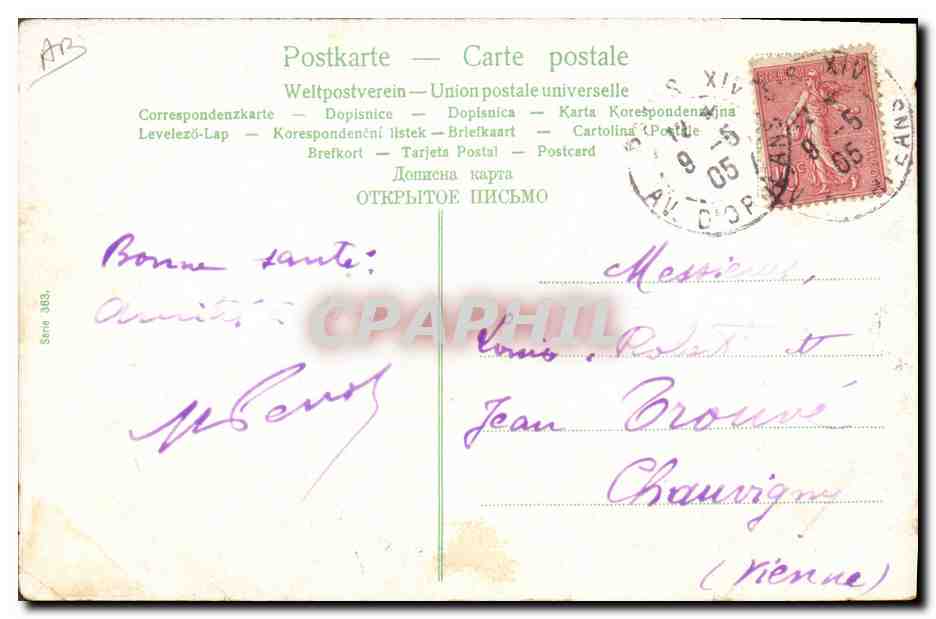 AB
Postkarte — Carte postale
Weltpostverein — Union postale universelle
Correspondenzkarte — Dopisnice — Dopisnica — Karta Korespondenzyjna
Levelező-Lap — Korespondenční listek — Briefkaart — Cartolina Postale
Brefkort — Tarjeta Postal — Postcard
Дописна карта
ОТКРЫТОЕ ПИСЬМО
XIV
9 -5
05
AV. D'ORLEANS
Bonne santé.
Amitiés
Messieurs,
Louis, Robert et
Jean Trouvé
Chauvigny
(Vienne)
Serie 363.
CPAPHIL